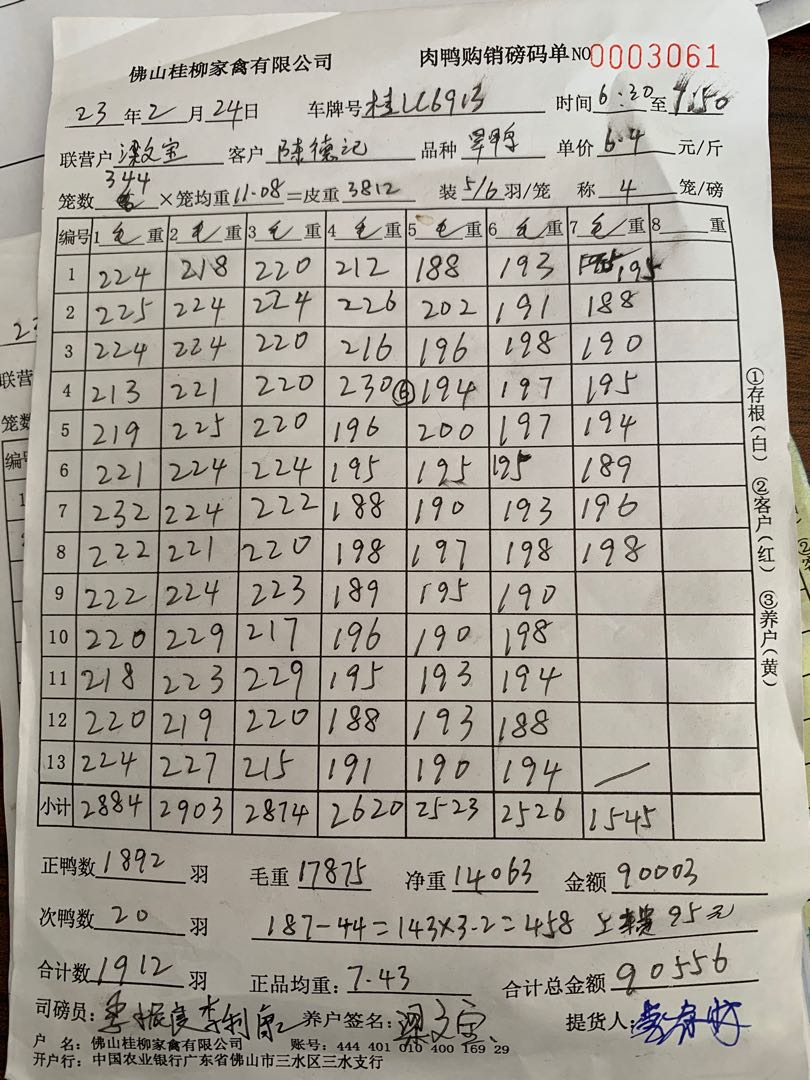 佛山桂柳家禽有限公司 肉鸭购销磅码单 NO 0003061
23年2月24日 车牌号桂LC6913 时间6:30至7:50
联营户 梁文宝 客户 陈德记 品种 旱鸭 单价6.4元/斤
笼数344×笼均重11.08=皮重3812 装5/6羽/笼 称4笼/磅
编号 1毛重 2毛重 3毛重 4毛重 5毛重 6毛重 7毛重 8 重
1 224 218 220 212 188 193 195
2 225 224 224 226 202 191 188
3 224 224 220 216 196 198 190
4 213 221 220 230 ⑥ 194 197 195
5 219 225 220 196 200 197 194
6 221 224 224 195 195 195 189
7 232 224 222 188 190 193 196
8 222 221 220 198 197 198 198
9 222 224 223 189 195 190
10 220 229 217 196 190 198
11 218 223 229 195 193 194
12 220 219 220 188 193 188
13 224 227 215 191 190 194 /
小计 2884 2903 2874 2620 2523 2526 1545
正鸭数1892羽 毛重17875 净重14063 金额90003
次鸭数20羽 187-44=143×3.2=458 95元
合计数1912羽 正品均重:7.43 合计总金额90556
司磅员: 养户签名:梁文宝 提货人:
户 名:佛山桂柳家禽有限公司 账号:444 401 010 400 169 29
开户行:中国农业银行广东省佛山市三水区三水支行
①存根(白) ②客户(红) ③养户(黄)